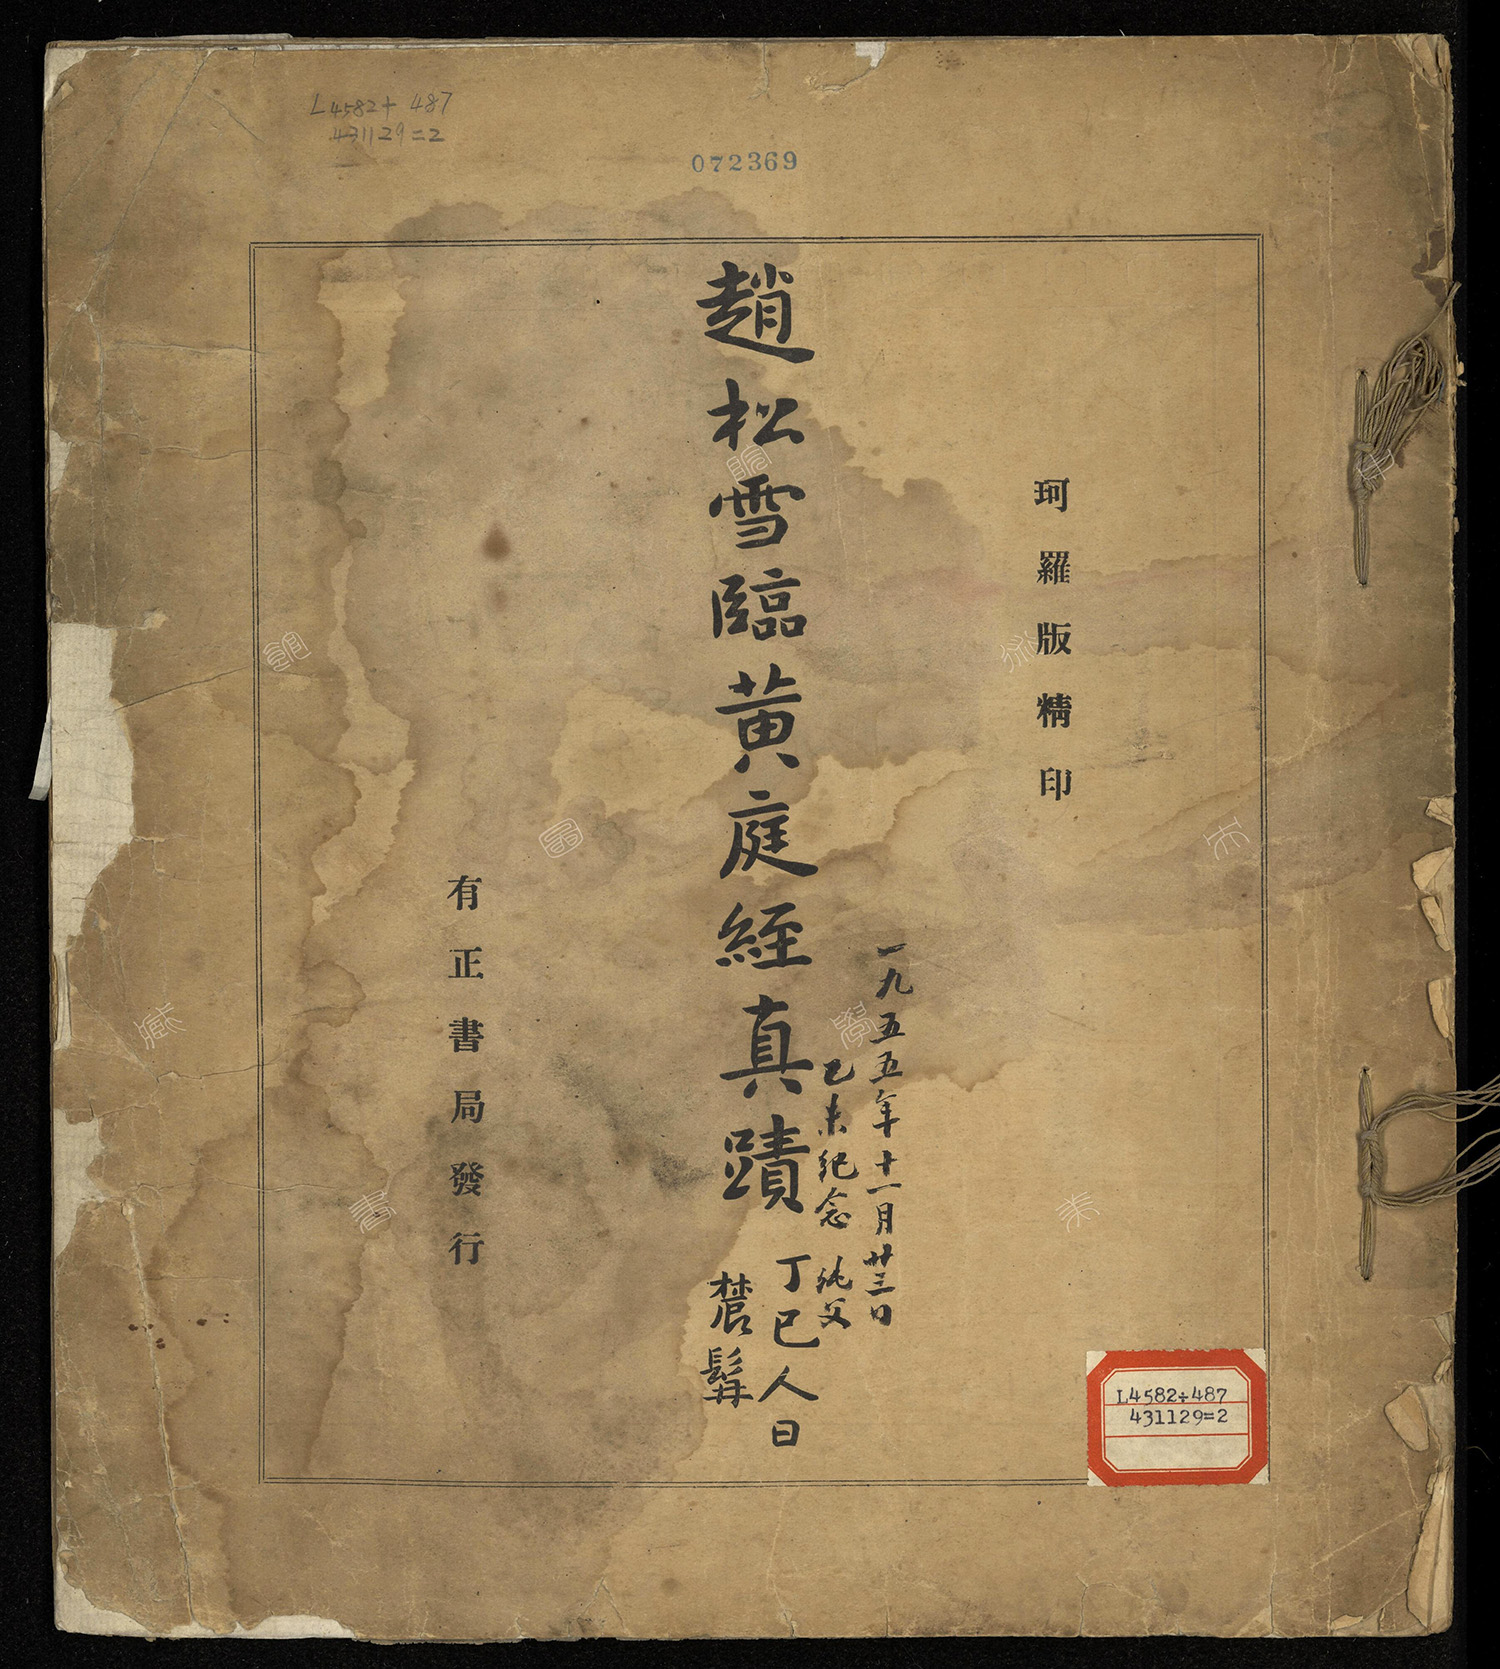 L4582÷487
431129=2
072369
珂羅版精印
趙松雪臨黄庭經真蹟
丁巳人日
農髯
一九五五年十一月廿三日
乙未紀念 純父
有正書局發行
L4582÷487
431129=2